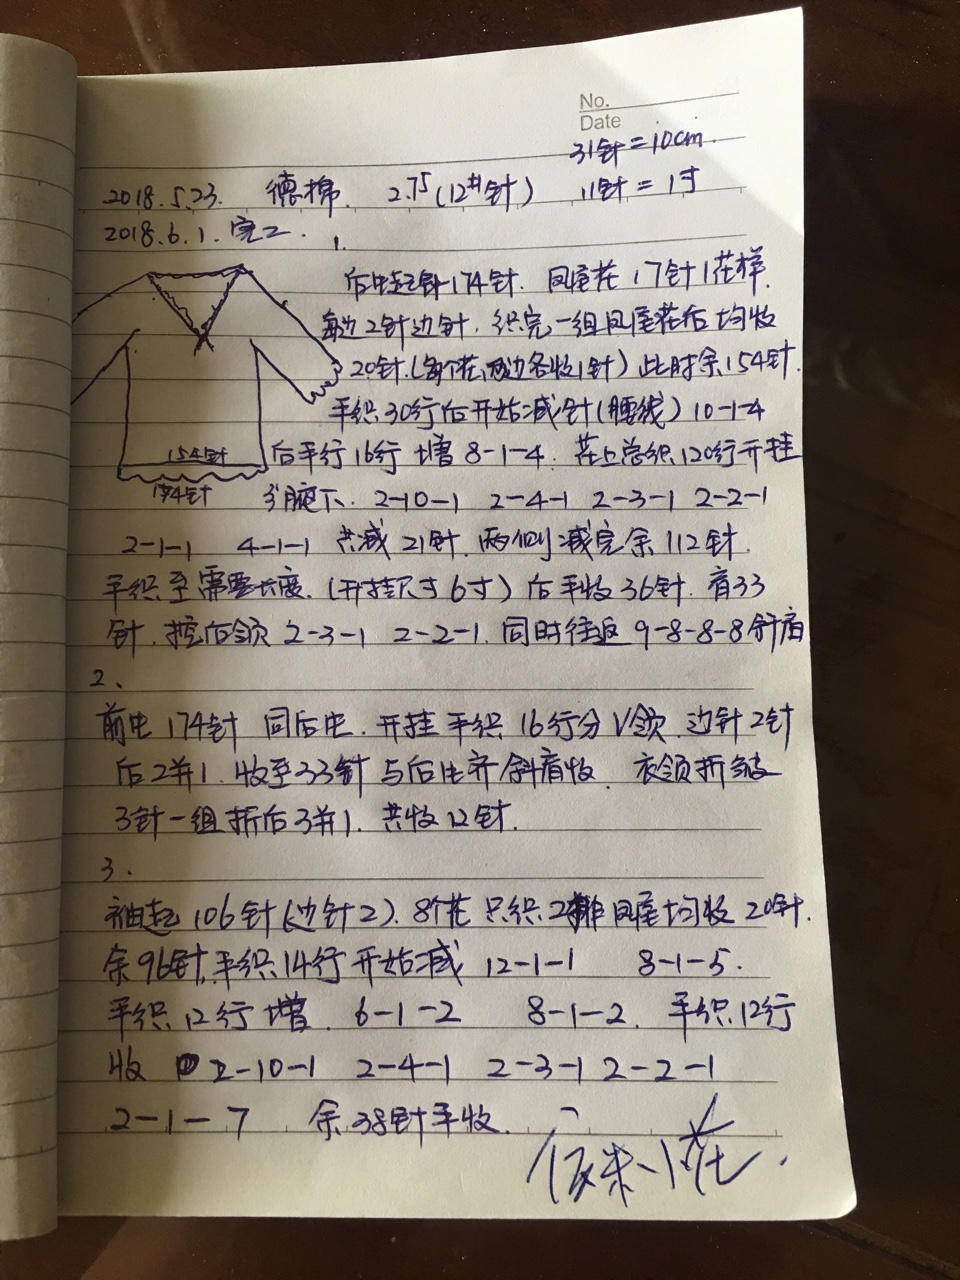 No.
Date
31针=10cm.
2018.5.23. 德棉. 2.75(12#针) 11针=1寸
2018.6.1.完工.
1.
后片起针174针. 凤尾花 17针1花样.
每边2针边针. 织完一组凤尾花后均收
20针.(每个花两边各收1针)此时余154针.
平织30行后开始减针(腰线)10-1-4
后平行16行 增 8-1-4. 花上总织120行开挂
154针
174针
腋下. 2-10-1 2-4-1 2-3-1 2-2-1
2-1-1 4-1-1 共减21针. 两侧减完余112针.
平织至需要长度.(开挂尺寸6寸)后平收36针. 肩33
针. 挖后领 2-3-1 2-2-1. 同时往返 9-8-8-8斜肩
2、
前片174针 同后片. 开挂平织16行分V领. 边针2针
后2并1. 收至33针与后片齐斜肩收. 衣领折皱
3针一组折后3并1. 共收12针.
3.
袖起106针(边针2). 8个花 只织2排凤尾均收20针.
余96针,平织14行开始减 12-1-1 8-1-5.
平织12行增. 6-1-2 8-1-2. 平织12行
收 2-10-1 2-4-1 2-3-1 2-2-1
2-1-7 余38针平收.
饭米小花.